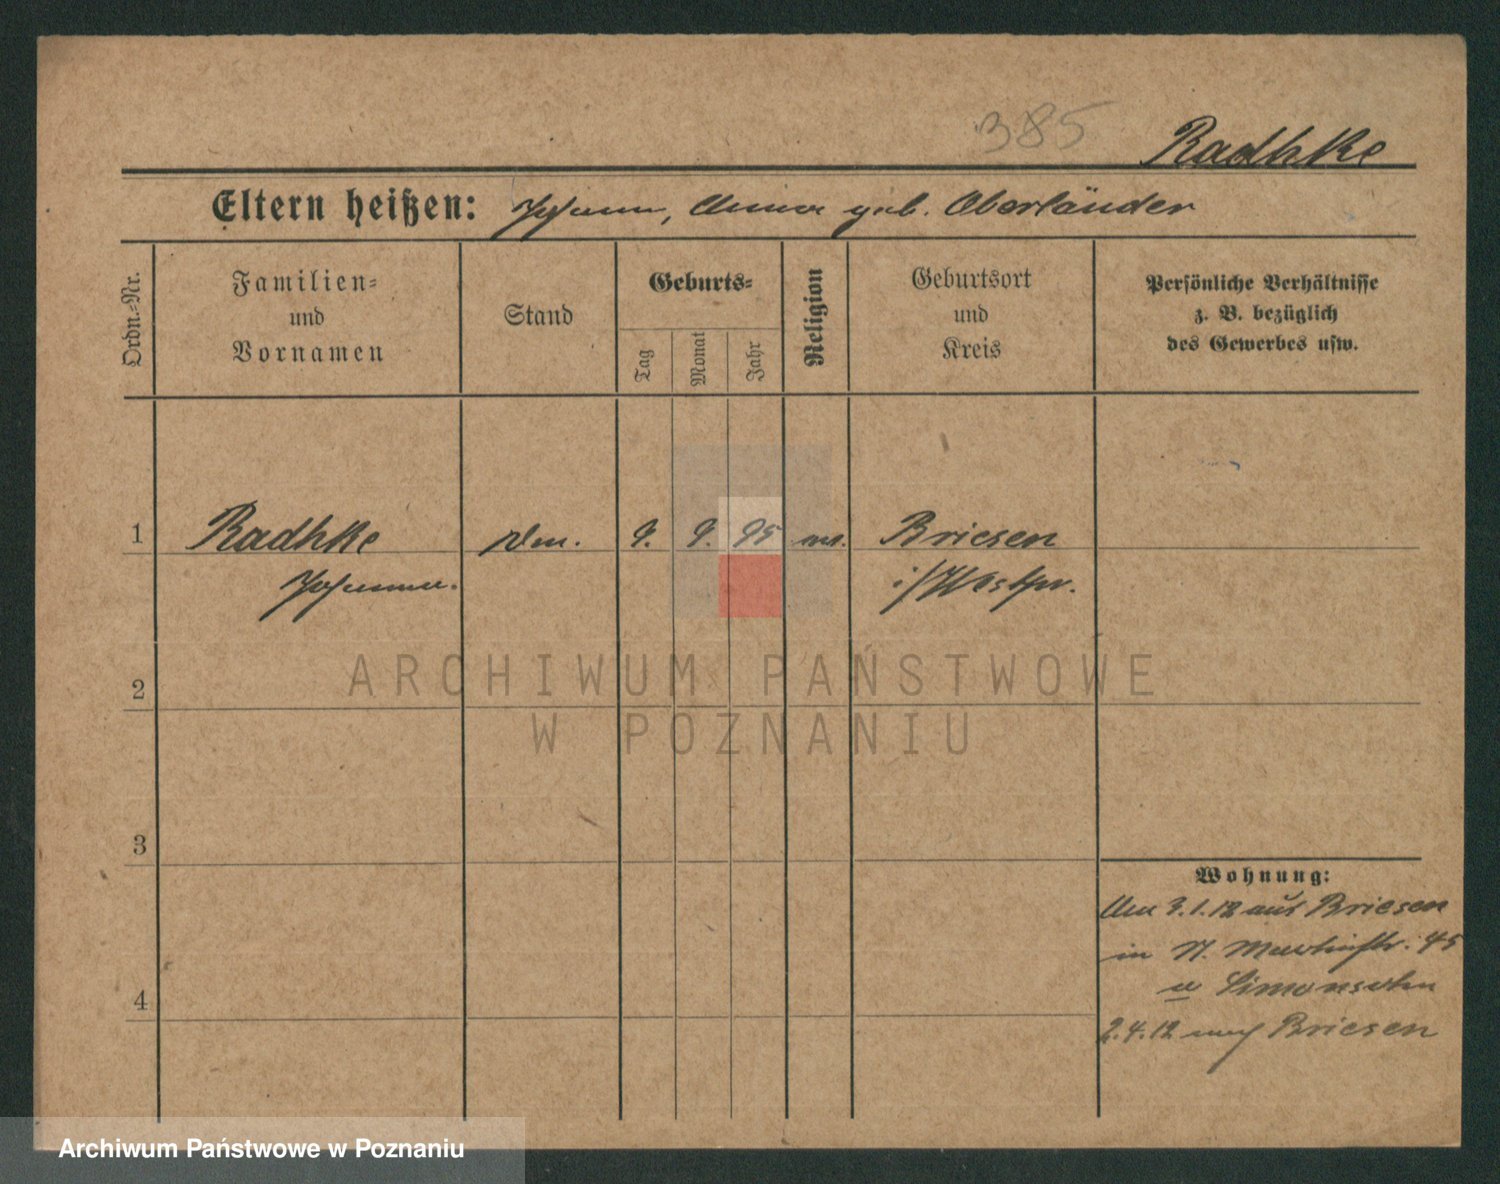 385
Radhke
Eltern heißen: Johann, Anna geb. Oberländer
Ordn.-Nr.
Familien-
und
Vornamen
Stand
Geburts-
Tag
Monat
Jahr
Religion
Geburtsort
und
Kreis
Persönliche Verhältnisse
z. B. bezüglich
des Gewerbes usw.
1
Radhke
9. 9. 95
Briesen
Johanna.
i/Westpr.
ARCHIWUM PAŃSTWOWE
W POZNANIU
2
3
4
Wohnung:
Am 3.1.12 aus Briesen
in St. Martinstr. 45
Simonsohn
2.4.12 nach Briesen
Archiwum Państwowe w Poznaniu